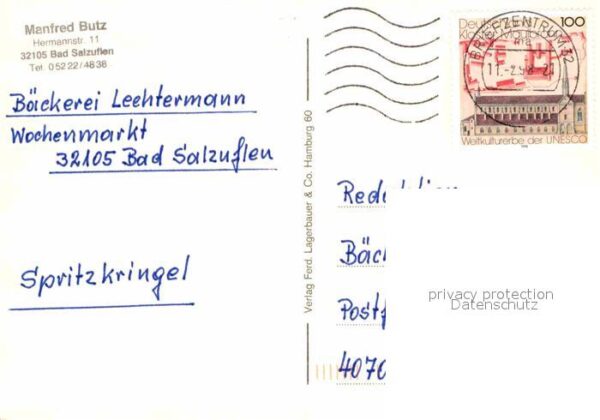 Manfred Butz
Hermannstr. 11
32105 Bad Salzuflen
Tel. 05222/4838
Bäckerei Lechtermann
Wochenmarkt
32105 Bad Salzuflen
Spritzkringel
Verlag Ferd. Lagerbauer & Co. Hamburg 60
100
BRIEFZENTRUM 32
Weltkulturerbe der UNESCO
Bäc
Postf
4070
privacy protection
Datenschutz